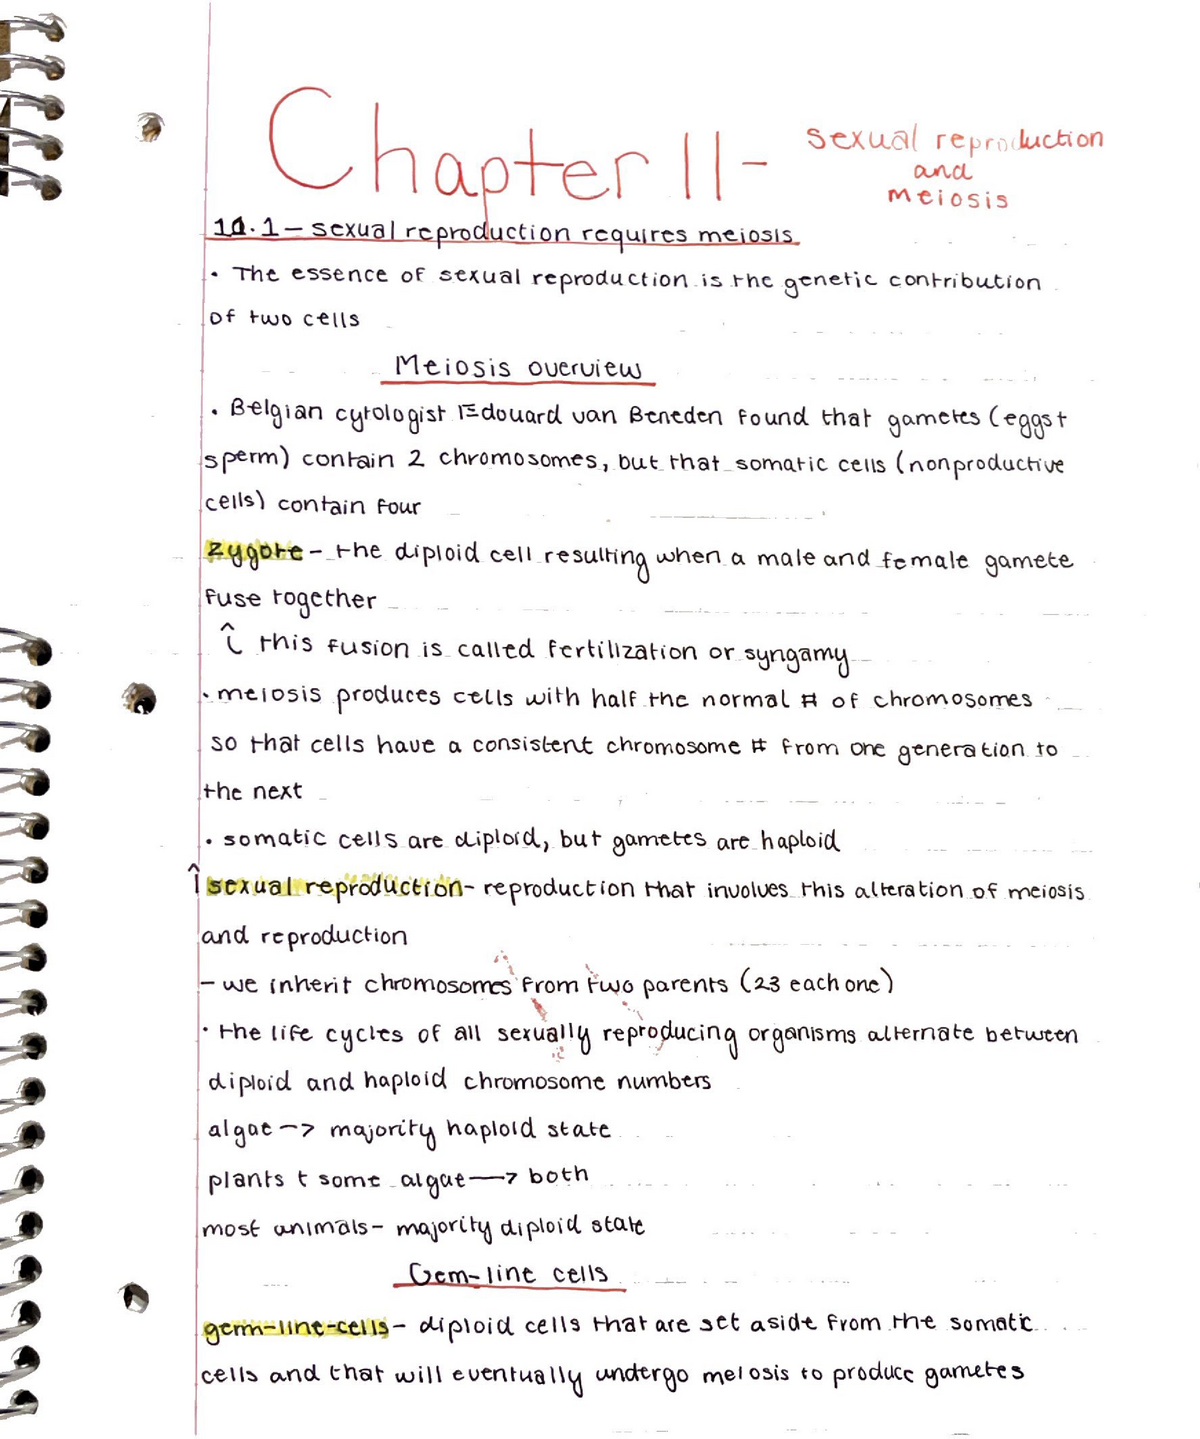 Chapter 11 -
sexual reproduction
and
meiosis
11.1 - sexual reproduction requires meiosis
• The essence of sexual reproduction is the genetic contribution
of two cells
Meiosis overview
• Belgian cytologist Edouard van Beneden found that gametes (eggs +
sperm) contain 2 chromosomes, but that somatic cells (nonproductive
cells) contain four
zygote - the diploid cell resulting when a male and female gamete
fuse together
this fusion is called fertilization or syngamy
• meiosis produces cells with half the normal # of chromosomes
so that cells have a consistent chromosome # from one generation to
the next
• somatic cells are diploid, but gametes are haploid
sexual reproduction - reproduction that involves this alteration of meiosis
and reproduction
- we inherit chromosomes from two parents (23 each one)
• the life cycles of all sexually reproducing organisms alternate between
diploid and haploid chromosome numbers
algae -> majority haploid state
plants + some algae -> both
most animals - majority diploid state
Gem-line cells
germ-line-cells - diploid cells that are set aside from the somatic
cells and that will eventually undergo meiosis to produce gametes